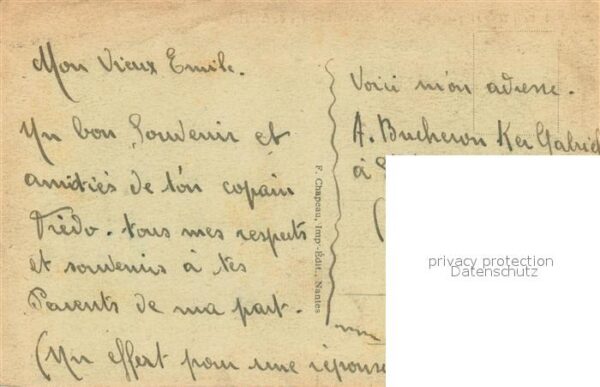 Mon Vieux Emile.
Un bon Souvenir et
amitiés de ton copain
Frédo. tous mes respects
et souvenirs à tes
Parents de ma part.
(Un effort pour une réponse
F. Chapeau, Imp.-Edit., Nantes
Voici mon adresse.
A. Bucheron Ker Gabriel
à
(
privacy protection
Datenschutz